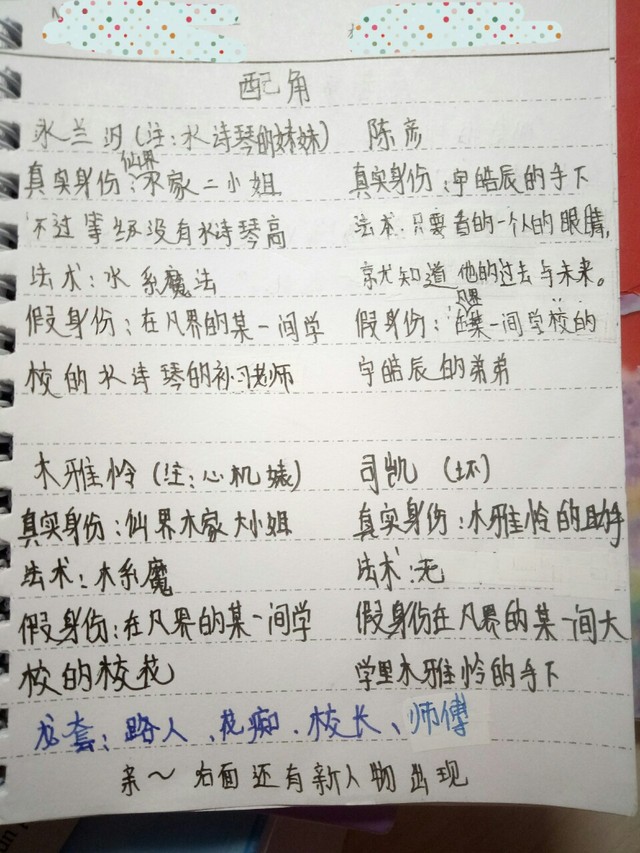 配角
水兰汐(注:水诗琴的妹妹)
真实身份:仙界水家二小姐
不过等级没有水诗琴高
法术:水系魔法
假身份:在凡界的某一间学
校的水诗琴的补习老师
陈彦
真实身份:宇皓辰的手下
法术:只要看的一个人的眼睛,
就知道他的过去与未来。
假身份:在凡界某一间学校的
宇皓辰的弟弟
木雅怜(注:心机婊)
真实身份:仙界木家大小姐
法术:木系魔
假身份:在凡界的某一间学
校的校花
司凯(坏)
真实身份:木雅怜的助手
法术:无
假身份在凡界的某一间大
学里木雅怜的手下
龙套:路人、花痴、校长、师傅
亲~后面还有新人物出现